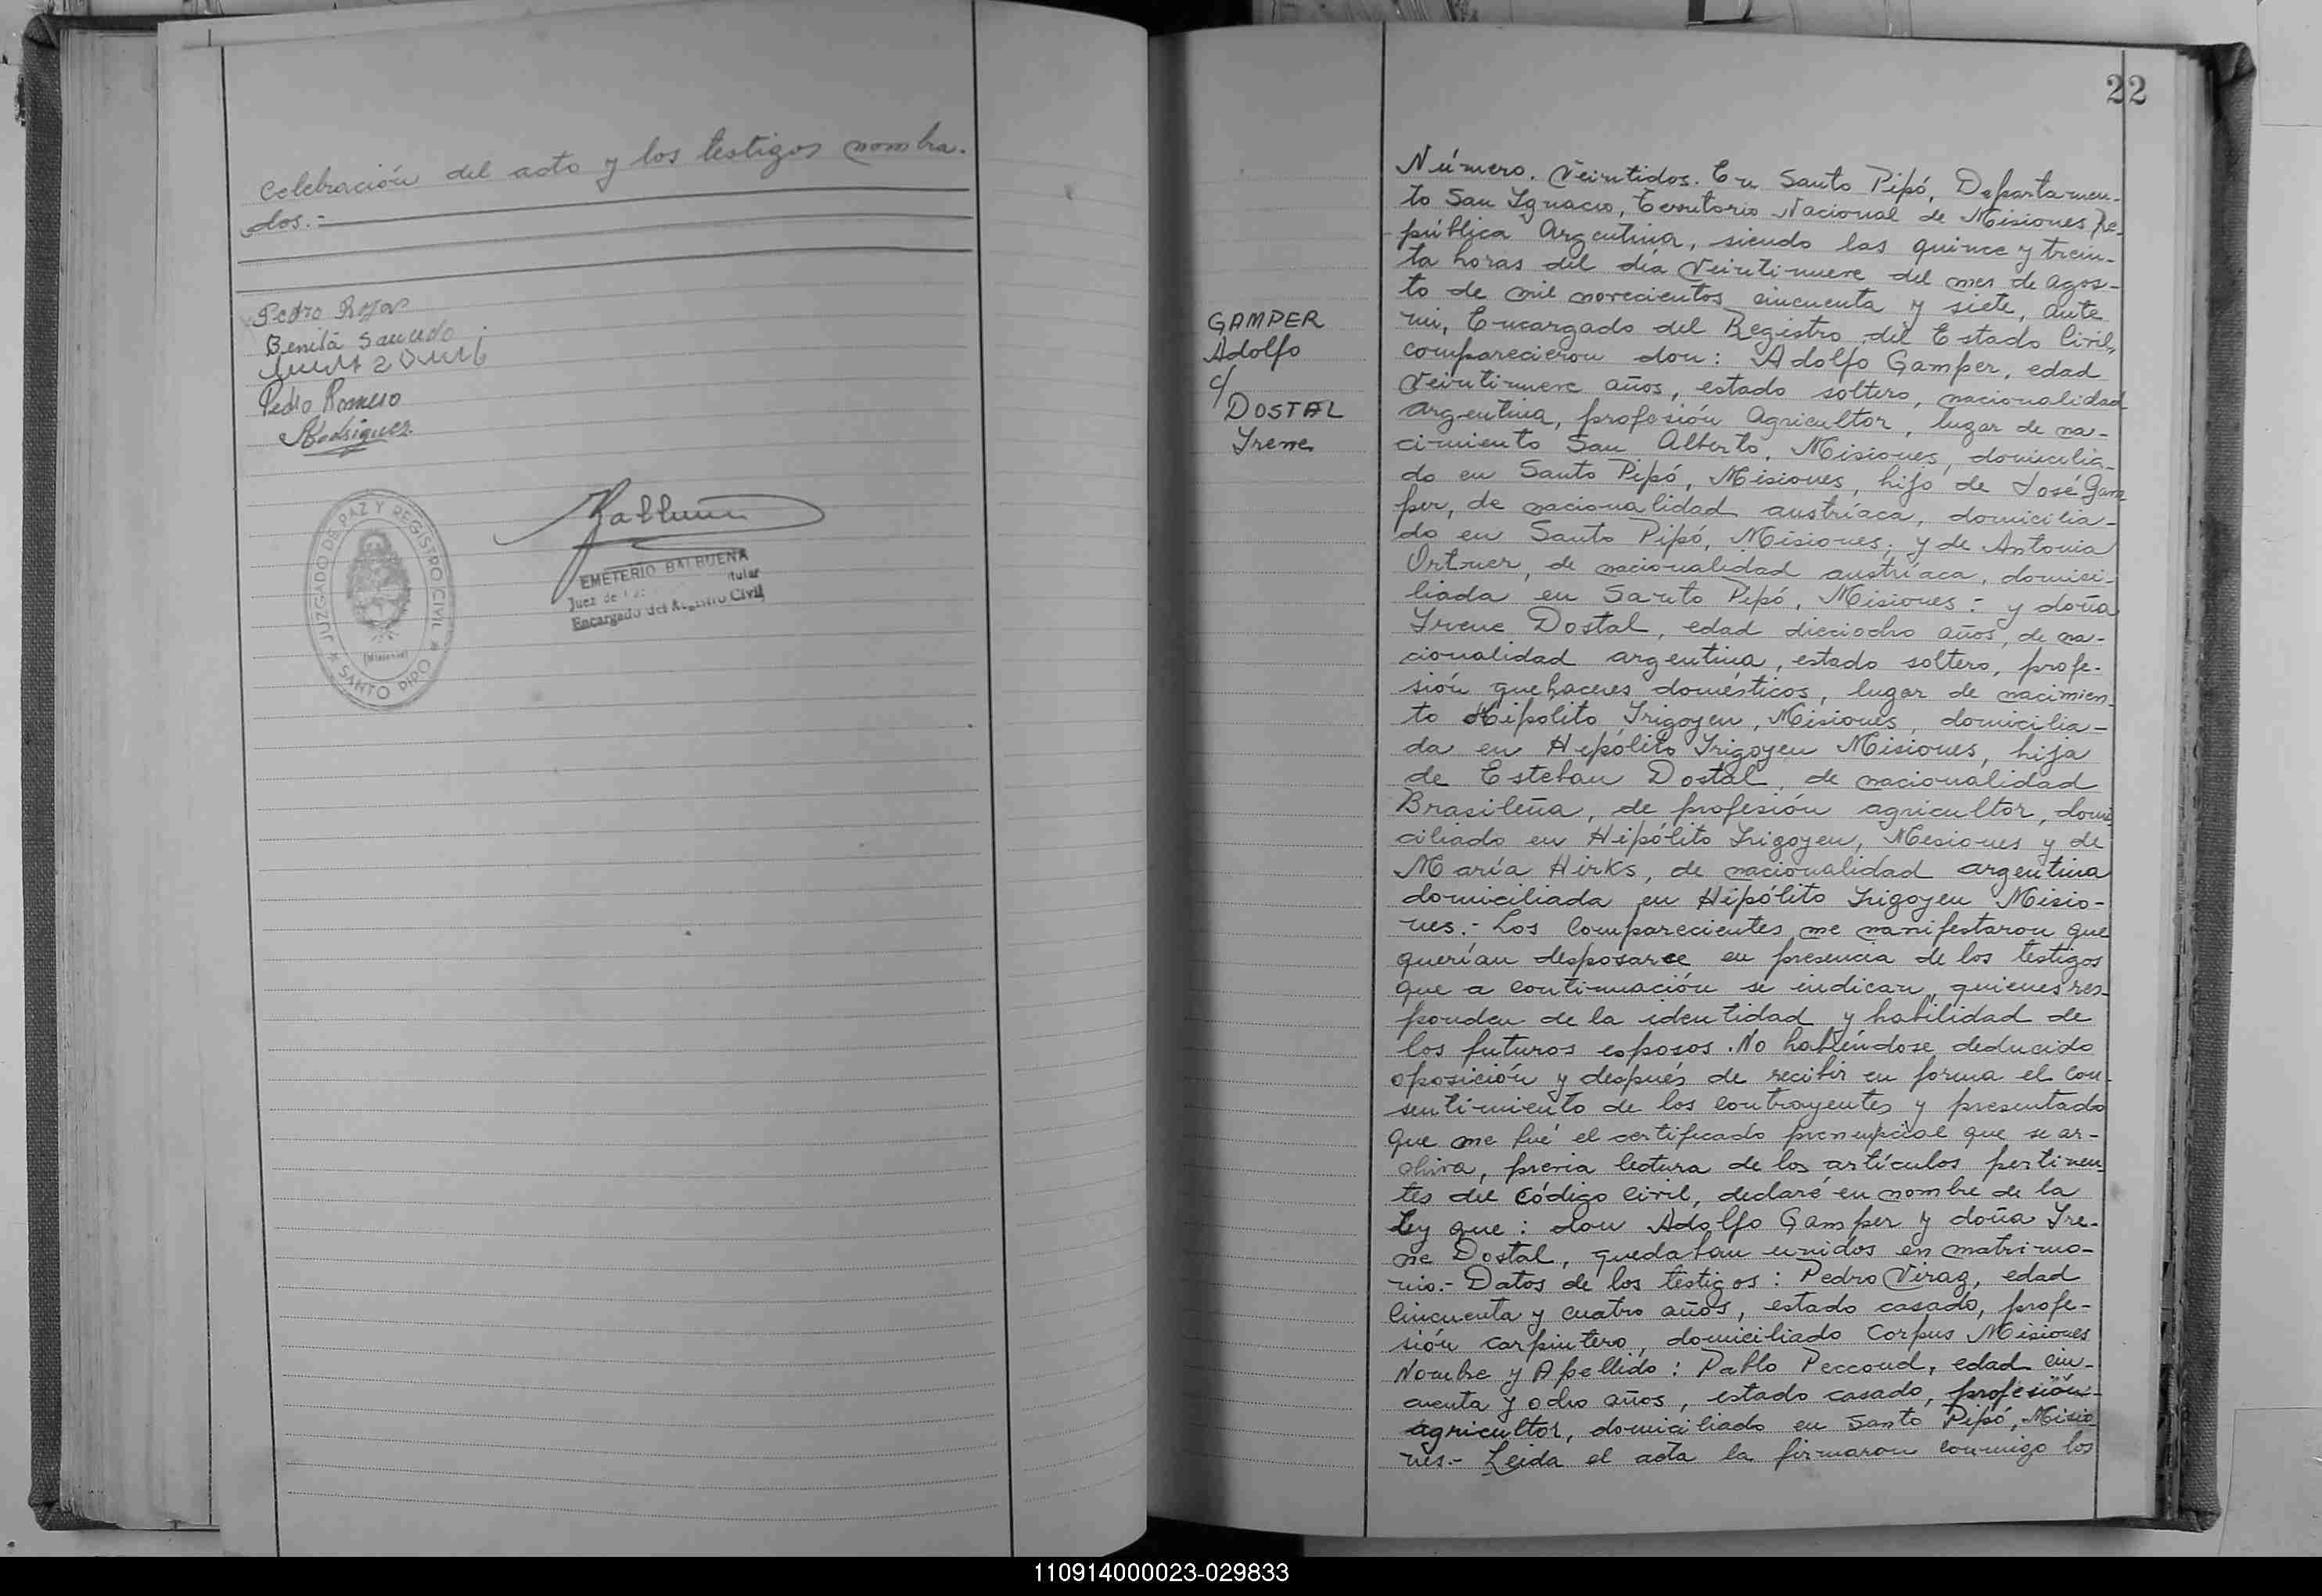 celebración del acto y los testigos nombra-
dos.-
Pedro Rojas
Benita Saucedo
Pedro Romero
ARodriguez
JUZGADO DE PAZ Y REGISTRO CIVIL
(Misiones)
SANTO PIPO
EMETERIO BALBUENA
Juez de Paz Titular
Encargado del Registro Civil
22
GAMPER
Adolfo
c/
DOSTAL
Irene
Número. Veintidos. En Santo Pipó, Departamen-
to San Ignacio, Territorio Nacional de Misiones, Re-
pública Argentina, siendo las quince y trein-
ta horas del día veintinueve del mes de agos-
to de mil novecientos cincuenta y siete, ante
mi, Encargado del Registro del Estado Civil,
comparecieron don: Adolfo Gamper, edad
veintinueve años, estado soltero, nacionalidad
argentina, profesión Agricultor, lugar de na-
cimiento San Alberto, Misiones, domicilia-
do en Santo Pipó, Misiones, hijo de José Gam-
per, de nacionalidad austríaca, domicilia-
do en Santo Pipó, Misiones; y de Antonia
Ortner, de nacionalidad austríaca, domici-
liada en Santo Pipó, Misiones:- y doña
Irene Dostal, edad dieciocho años, de na-
cionalidad argentina, estado soltero, profe-
sión quehaceres domésticos, lugar de nacimien-
to Hipólito Irigoyen, Misiones, domicilia-
da en Hipólito Irigoyen Misiones, hija
de Esteban Dostal, de nacionalidad
Brasileña, de profesión agricultor, domi-
ciliado en Hipólito Irigoyen, Misiones y de
María Hirks, de nacionalidad argentina
domiciliada en Hipólito Irigoyen Misio-
nes.- Los comparecientes me manifestaron que
querían desposarce en presencia de los testigos
que a continuación se indican, quienes res-
ponden de la identidad y habilidad de
los futuros esposos. No habiéndose deducido
oposición y después de recibir en forma el con-
sentimiento de los contrayentes y presentado
que me fué el certificado prenupcial que se ar-
chiva, previa lectura de los artículos pertinen-
tes del Código Civil, declaré en nombre de la
Ley que: don Adolfo Gamper y doña Ire-
ne Dostal, quedaban unidos en matrimo-
nio.- Datos de los testigos: Pedro Virag, edad
cincuenta y cuatro años, estado casado, profe-
sión carpintero, domiciliado Corpus Misiones
Nombre y Apellido: Pablo Peccoud, edad cin-
cuenta y ocho años, estado casado, profesión
agricultor, domiciliado en Santo Pipó, Misio-
nes.- Leida el acta la firmaron conmigo los
110914000023-029833